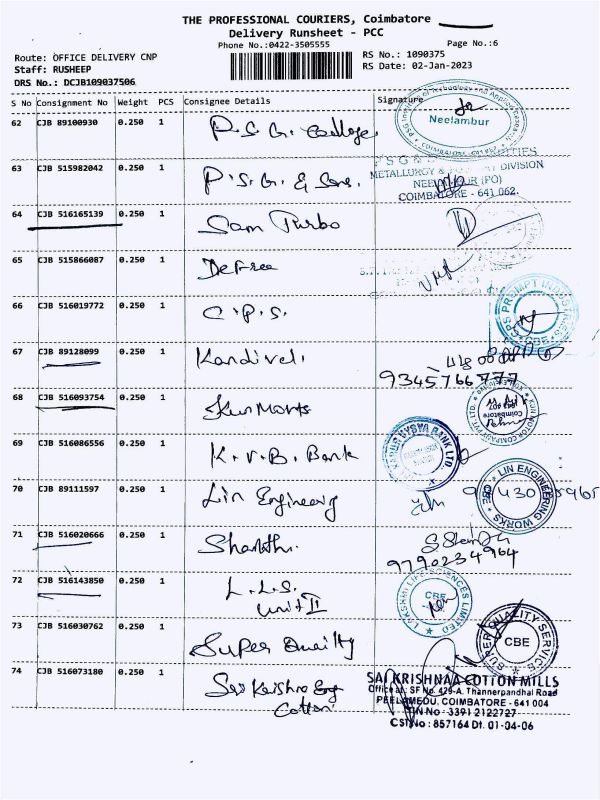 THE PROFESSIONAL COURIERS, Coimbatore
Delivery Runsheet - PCC
Phone No.:0422-3505555
Page No.:6
Route: OFFICE DELIVERY CNP
RS No.: 1090375
Staff: RUSHEEP
RS Date: 02-Jan-2023
DRS No.: DCJB109037506
S No Consignment No Weight PCS Consignee Details Signature
62 CJB 89100930 0.250 1 P.S.G. College
Neelambur
63 CJB 515982042 0.250 1 P.S.G. & Sons.
METALLURGY & DIVISION
NEELAMBUR (PO)
COIMBATORE - 641 062.
64 CJB 516165139 0.250 1 Sam Turbo
65 CJB 515866087 0.250 1 Defree
66 CJB 516019772 0.250 1 C.P.S.
CPS PROMPT INDUSTRIES
CBE
67 CJB 89128099 0.250 1 Kandivel.
9345766777
68 CJB 516093754 0.250 1
KUN MOTOR COMPANY PVT. LTD.
Coimbatore
69 CJB 516086556 0.250 1 K.V.B. Bank
VYSYA BANK LTD
70 CJB 89111597 0.250 1 Lin Engineering
LIN ENGINEERING WORKS
CBE
71 CJB 516020666 0.250 1 Shakthi.
9790234964
72 CJB 516143850 0.250 1 L.L.S.
Unit II
LAKSHMI LIFE SCIENCES LIMITED
CBE
73 CJB 516030762 0.250 1 Super Quailty
SUPER QUALITY SERVICE
CBE
74 CJB 516073180 0.250 1 Sri Krishna
Cotton
SAI KRISHNAA COTTON MILLS
Office at: SF No. 429-A. Thannerpandhal Road
PEELAMEDU, COIMBATORE - 641 004
TIN No - 3391 2122727
CST No : 857164 Dt. 01-04-06